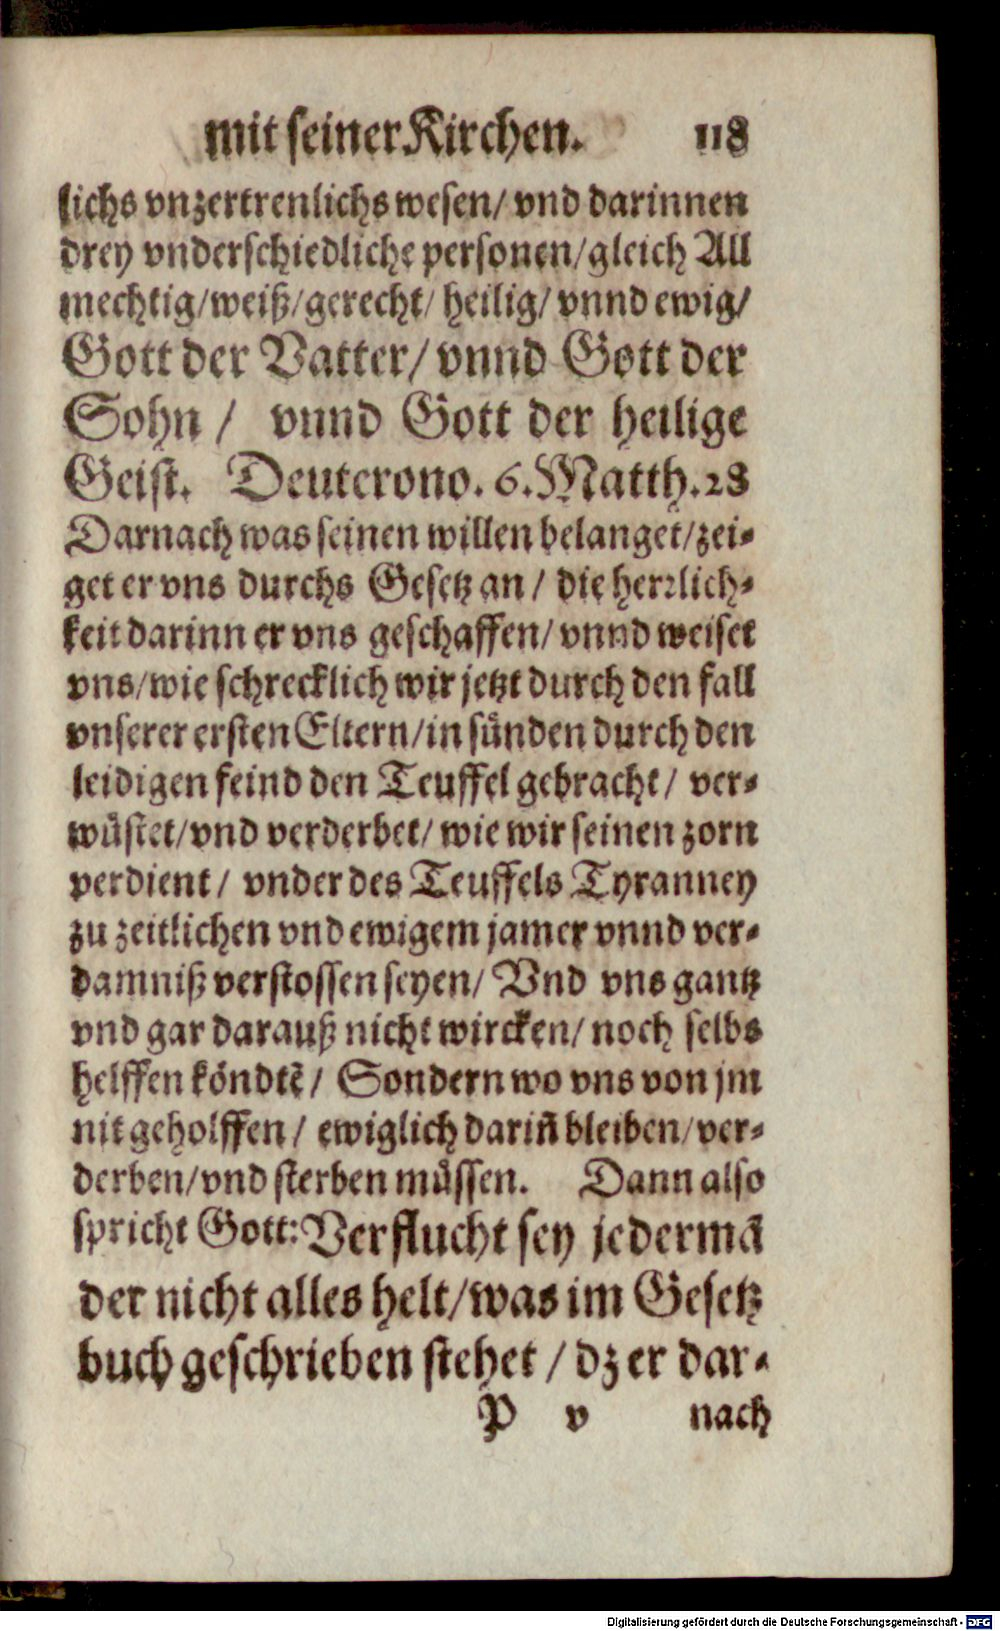 mit seiner Kirchen. 118
lichs vnzertrenlichs wesen/ vnd darinnen
drey vnderschiedliche personen/gleich All
mechtig/weiß/gerecht/ heilig/ vnnd ewig/
Gott der Vatter/ vnnd Gott der
Sohn / vnnd Gott der heilige
Geist. Deuterono. 6. Matth. 28
Darnach was seinen willen belanget/zei-
get er vns durchs Gesetz an / die herrlich-
keit darinn er vns geschaffen/ vnnd weiset
vns/wie schrecklich wir jetzt durch den fall
vnserer ersten Eltern/in sünden durch den
leidigen feind den Teuffel gebracht/ ver-
wüstet/vnd verderbet/ wie wir seinen zorn
verdient/ vnder des Teuffels Tyranney
zu zeitlichen vnd ewigem jamer vnnd ver-
damniß verstossen seyen/ Vnd vns gantz
vnd gar darauß nicht wircken/ noch selbs
helffen köndtẽ/ Sondern wo vns von jm
nit geholffen/ ewiglich dariñ bleiben/ver-
derben/vnd sterben müssen. Dann also
spricht Gott: Verflucht sey jedermã
der nicht alles helt/was im Gesetz
buch geschrieben stehet / dz er dar-
P v nach
Digitalisierung gefördert durch die Deutsche Forschungsgemeinschaft - DFG